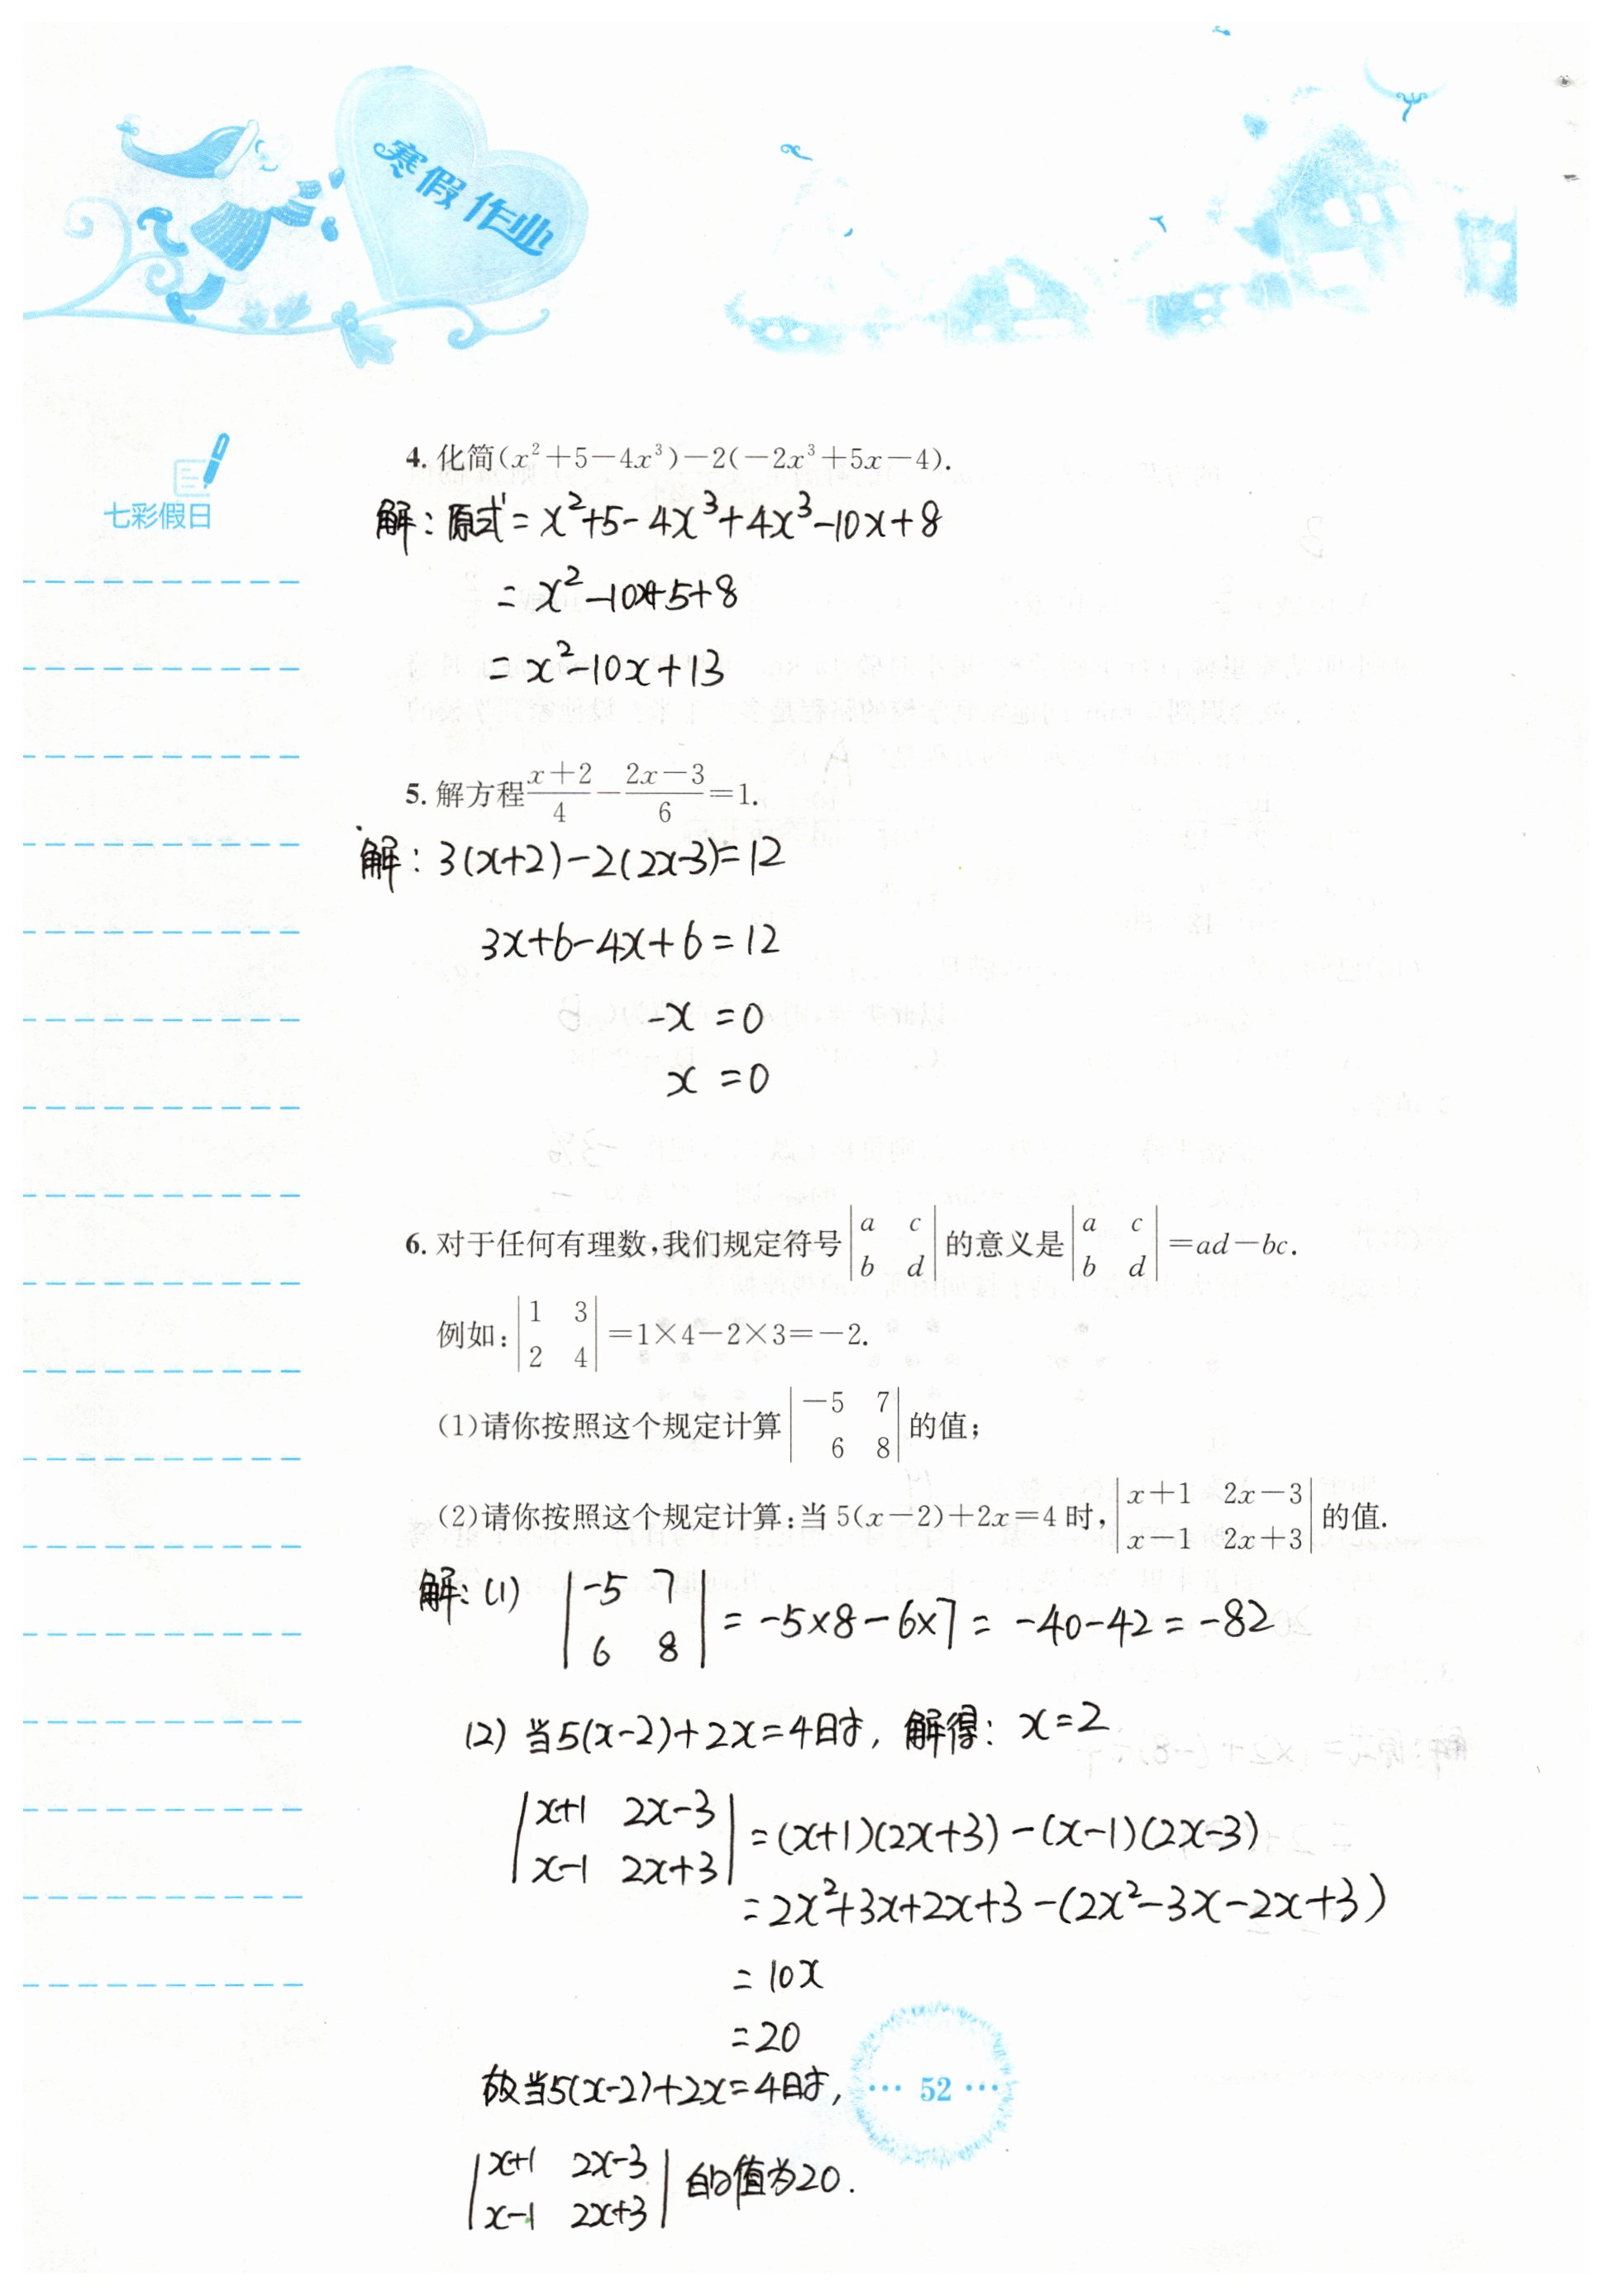 寒假作业
七彩假日
4. 化简(x²+5-4x³)-2(-2x³+5x-4).
解：原式=x²+5-4x³+4x³-10x+8
=x²-10x+5+8
=x²-10x+13
5. 解方程(x+2)/4-(2x-3)/6=1.
解：3(x+2)-2(2x-3)=12
3x+6-4x+6=12
-x=0
x=0
6. 对于任何有理数,我们规定符号|a c; b d|的意义是|a c; b d|=ad-bc.
例如:|1 3; 2 4|=1×4-2×3=-2.
(1)请你按照这个规定计算|-5 7; 6 8|的值;
(2)请你按照这个规定计算:当5(x-2)+2x=4时,|x+1 2x-3; x-1 2x+3|的值.
解：(1) |-5 7; 6 8|=-5×8-6×7=-40-42=-82
(2) 当5(x-2)+2x=4时，解得：x=2
|x+1 2x-3; x-1 2x+3|=(x+1)(2x+3)-(x-1)(2x-3)
=2x²+3x+2x+3-(2x²-3x-2x+3)
=10x
=20
故当5(x-2)+2x=4时，
|x+1 2x-3; x-1 2x+3|的值为20.
··· 52 ···